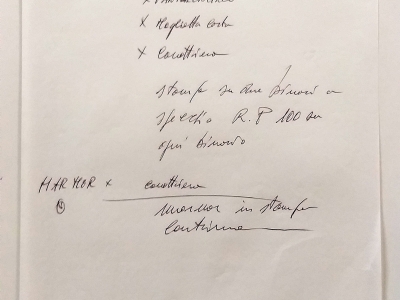 x
x Maglietta corta
x canottiera
stampa su due binari a
specchio R.P 100 su
ogni binario
MARMOR x canottiera
marmor in stampa
continua